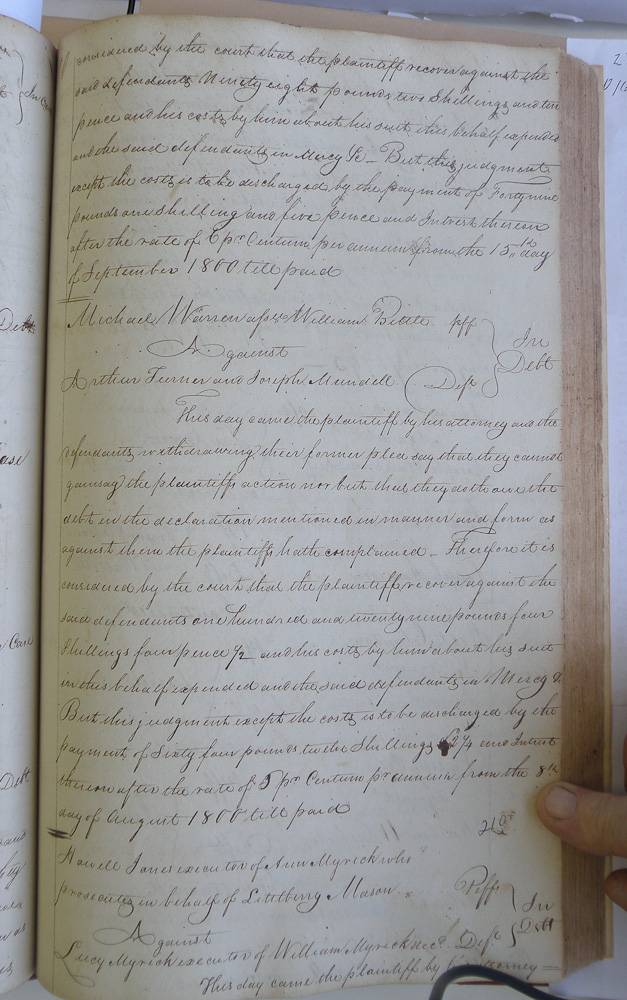 considered by the court that the plaintiff recover against the
said defendants Ninety eight pounds two Shillings and ten
pence and his costs by him about his suit in this behalf expended
and the said defendants in Mercy &c - But this judgment
except the costs is to be discharged by the payment of Fortynine
pounds one shilling and five pence and Intrest thereon
after the rate of 6 pr Centum per annum from the 15th day
of September 1800 till paid
Michael Warren asse William Bittle plff
In
Against
Debt
Arthur Turner and Joseph Mundell Deft
This day came the plaintiff by his attorney and the
defendants withdrawing their former plea say that they cannot
gainsay the plaintiffs action nor but that they do the owe the
debt in the declaration mentioned in manner and form as
against them the plaintiff hath complained - Therefore it is
considered by the court that the plaintiff recover against the
said defendants one hundred and twentynine pounds four
Shillings four pence 1/2 and his costs by him about his suit
in this behalf expended and the said defendants in Mercy &
But this judgment except the costs is to be discharged by the
payment of Sixty four pounds twelve Shillings & 2 1/4 and Intrest
thereon after the rate of 5 pr Centum pr annum from the 8th
day of August 1800 till paid
Howell Jones executor of Ann Myrick who
prosecutes in behalf of Littelberry Mason Plff
In
Against
Debt
Lucy Myrick executor of William Myrick decd Deft
This day came the plaintiff by his attorney